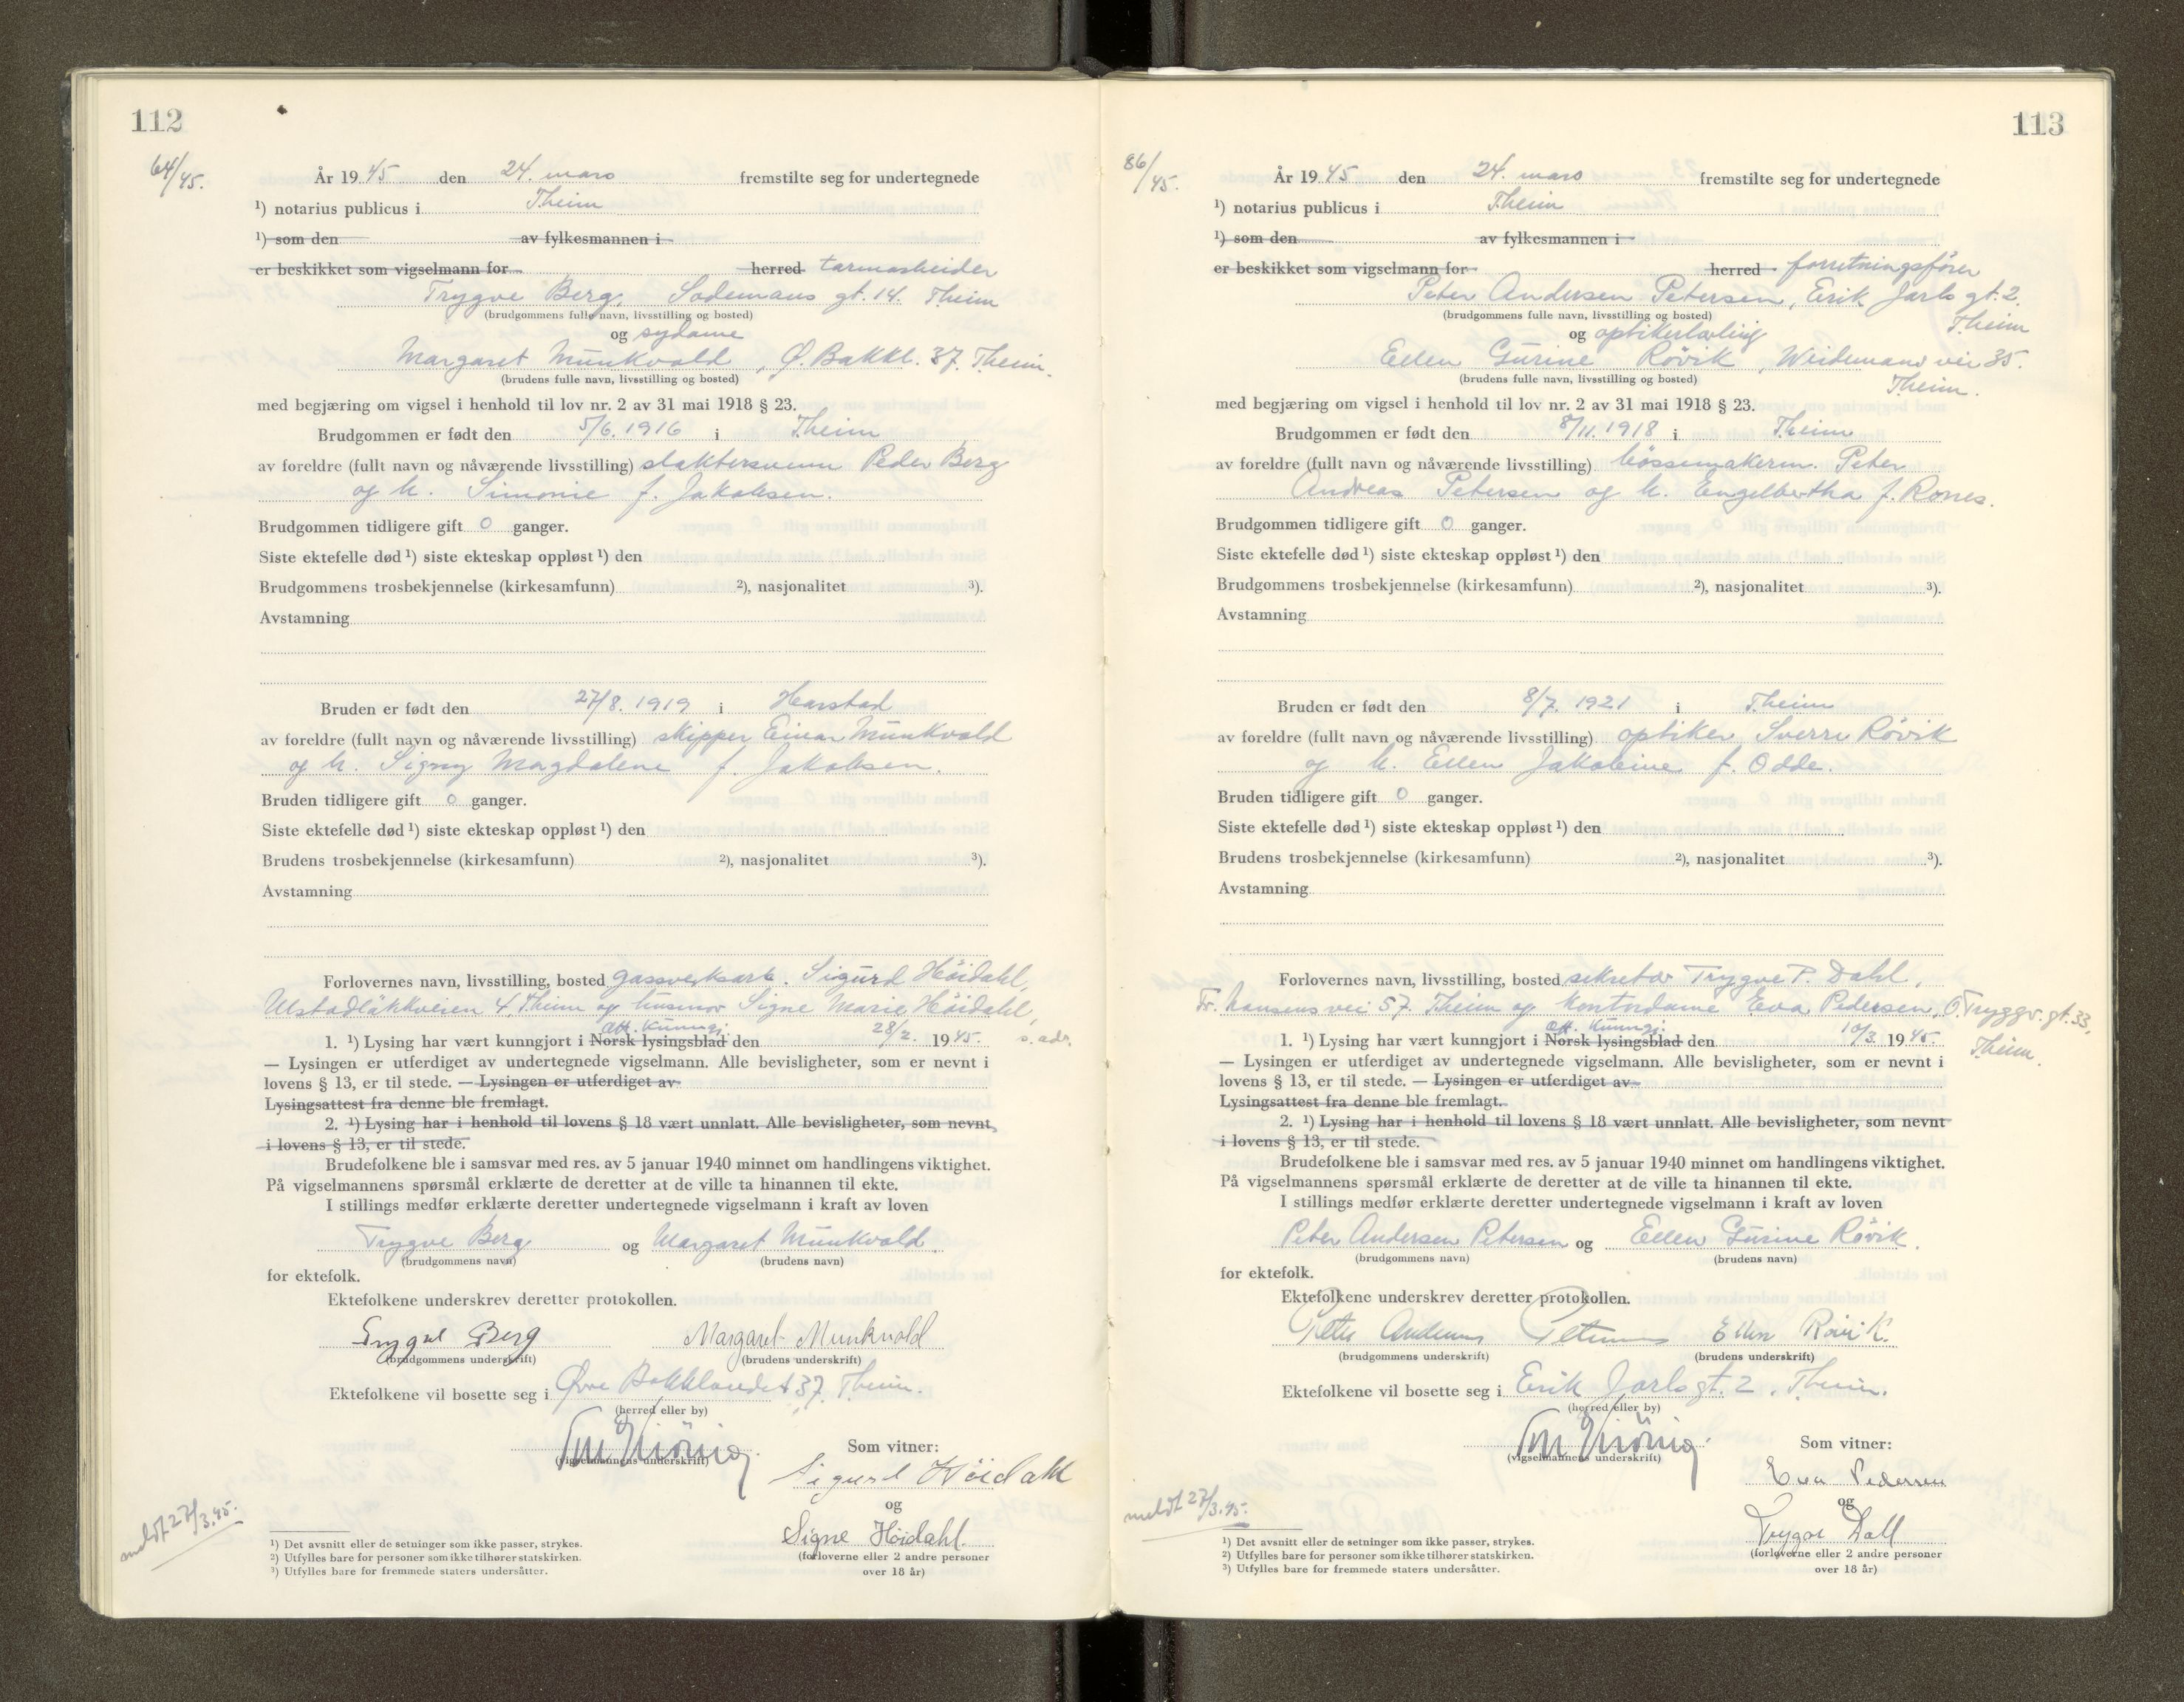 112
64/45.
År 1945 den 24. mars fremstilte seg for undertegnede
¹) notarius publicus i T.heim
¹) som den av fylkesmannen i
er beskikket som vigselmann for herred tarmarbeider
Trygve Berg, Sodemans gt. 14. T.heim
(brudgommens fulle navn, livsstilling og bosted)
og sydame
Margaret Munkvold, Ø. Bakkl. 37. T.heim.
(brudens fulle navn, livsstilling og bosted)
med begjæring om vigsel i henhold til lov nr. 2 av 31 mai 1918 § 23.
Brudgommen er født den 5/6. 1916 i T.heim
av foreldre (fullt navn og nåværende livsstilling) slaktersvenn Peder Berg
og h. Simonie f. Jakobsen.
Brudgommen tidligere gift 0 ganger.
Siste ektefelle død ¹) siste ekteskap oppløst ¹) den
Brudgommens trosbekjennelse (kirkesamfunn) ²), nasjonalitet ³).
Avstamning
Bruden er født den 27/8. 1919 i Harstad
av foreldre (fullt navn og nåværende livsstilling) skipper Einar Munkvold
og h. Signy Magdalene f. Jakobsen.
Bruden tidligere gift 0 ganger.
Siste ektefelle død ¹) siste ekteskap oppløst ¹) den
Brudens trosbekjennelse (kirkesamfunn) ²), nasjonalitet ³).
Avstamning
Forlovernes navn, livsstilling, bosted gassverksarb. Sigurd Höidahl,
Ulstadløkkveien 4, T.heim og husmor Signe Marie Höidahl,
off. kunngj. s. adr.
1. ¹) Lysing har vært kunngjort i Norsk lysingsblad den 28/2. 1945.
— Lysingen er utferdiget av undertegnede vigselmann. Alle bevisligheter, som er nevnt i
lovens § 13, er til stede. — Lysingen er utferdiget av
Lysingsattest fra denne ble fremlagt.
2. ¹) Lysing har i henhold til lovens § 18 vært unnlatt. Alle bevisligheter, som nevnt
i lovens § 13, er til stede.
Brudefolkene ble i samsvar med res. av 5 januar 1940 minnet om handlingens viktighet.
På vigselmannens spørsmål erklærte de deretter at de ville ta hinannen til ekte.
I stillings medfør erklærte deretter undertegnede vigselmann i kraft av loven
Trygve Berg og Margaret Munkvold.
(brudgommens navn) (brudens navn)
for ektefolk.
Ektefolkene underskrev deretter protokollen.
Trygve Berg Margaret Munkvold
(brudgommens underskrift) (brudens underskrift)
Ektefolkene vil bosette seg i Øvre Bakklandet 37. T.heim.
(herred eller by)
(vigselmannens underskrift)
Som vitner:
Sigurd Höidahl
og
Signe Höidahl.
(forloverne eller 2 andre personer
over 18 år)
meldt 27/3.45.
¹) Det avsnitt eller de setninger som ikke passer, strykes.
²) Utfylles bare for personer som ikke tilhører statskirken.
³) Utfylles bare for fremmede staters undersåtter.
113
86/45.
År 1945 den 24. mars fremstilte seg for undertegnede
¹) notarius publicus i T.heim
¹) som den av fylkesmannen i
er beskikket som vigselmann for herred forretningsfører
Peter Andersen Petersen, Erik Jarls gt. 2.
T.heim
(brudgommens fulle navn, livsstilling og bosted)
og optikerlærling
Ellen Gurine Rövik, Weidemans vei 35.
T.heim.
(brudens fulle navn, livsstilling og bosted)
med begjæring om vigsel i henhold til lov nr. 2 av 31 mai 1918 § 23.
Brudgommen er født den 8/11. 1918 i T.heim
av foreldre (fullt navn og nåværende livsstilling) bössemakerm. Peter
Andreas Petersen og h. Engelbertha f. Rones.
Brudgommen tidligere gift 0 ganger.
Siste ektefelle død ¹) siste ekteskap oppløst ¹) den
Brudgommens trosbekjennelse (kirkesamfunn) ²), nasjonalitet ³).
Avstamning
Bruden er født den 8/7. 1921 i T.heim
av foreldre (fullt navn og nåværende livsstilling) optiker Sverre Rövik
og h. Ellen Jakobine f. Odde.
Bruden tidligere gift 0 ganger.
Siste ektefelle død ¹) siste ekteskap oppløst ¹) den
Brudens trosbekjennelse (kirkesamfunn) ²), nasjonalitet ³).
Avstamning
Forlovernes navn, livsstilling, bosted sekretær Trygve P. Dahl,
Fr. Nansens vei 57. T.heim og kontordame Eva Pedersen, O. Tryggv. gt. 33,
T.heim.
off. kunngj.
1. ¹) Lysing har vært kunngjort i Norsk lysingsblad den 10/3. 1945.
— Lysingen er utferdiget av undertegnede vigselmann. Alle bevisligheter, som er nevnt i
lovens § 13, er til stede. — Lysingen er utferdiget av
Lysingsattest fra denne ble fremlagt.
2. ¹) Lysing har i henhold til lovens § 18 vært unnlatt. Alle bevisligheter, som nevnt
i lovens § 13, er til stede.
Brudefolkene ble i samsvar med res. av 5 januar 1940 minnet om handlingens viktighet.
På vigselmannens spørsmål erklærte de deretter at de ville ta hinannen til ekte.
I stillings medfør erklærte deretter undertegnede vigselmann i kraft av loven
Peter Andersen Petersen og Ellen Gurine Rövik.
(brudgommens navn) (brudens navn)
for ektefolk.
Ektefolkene underskrev deretter protokollen.
Peter Andersen Petersen Ellen Rövik.
(brudgommens underskrift) (brudens underskrift)
Ektefolkene vil bosette seg i Erik Jarls gt. 2. T.heim.
(herred eller by)
(vigselmannens underskrift)
Som vitner:
Eva Pedersen
og
Trygve Dahl
(forloverne eller 2 andre personer
over 18 år)
meldt 27/3.45.
¹) Det avsnitt eller de setninger som ikke passer, strykes.
²) Utfylles bare for personer som ikke tilhører statskirken.
³) Utfylles bare for fremmede staters undersåtter.